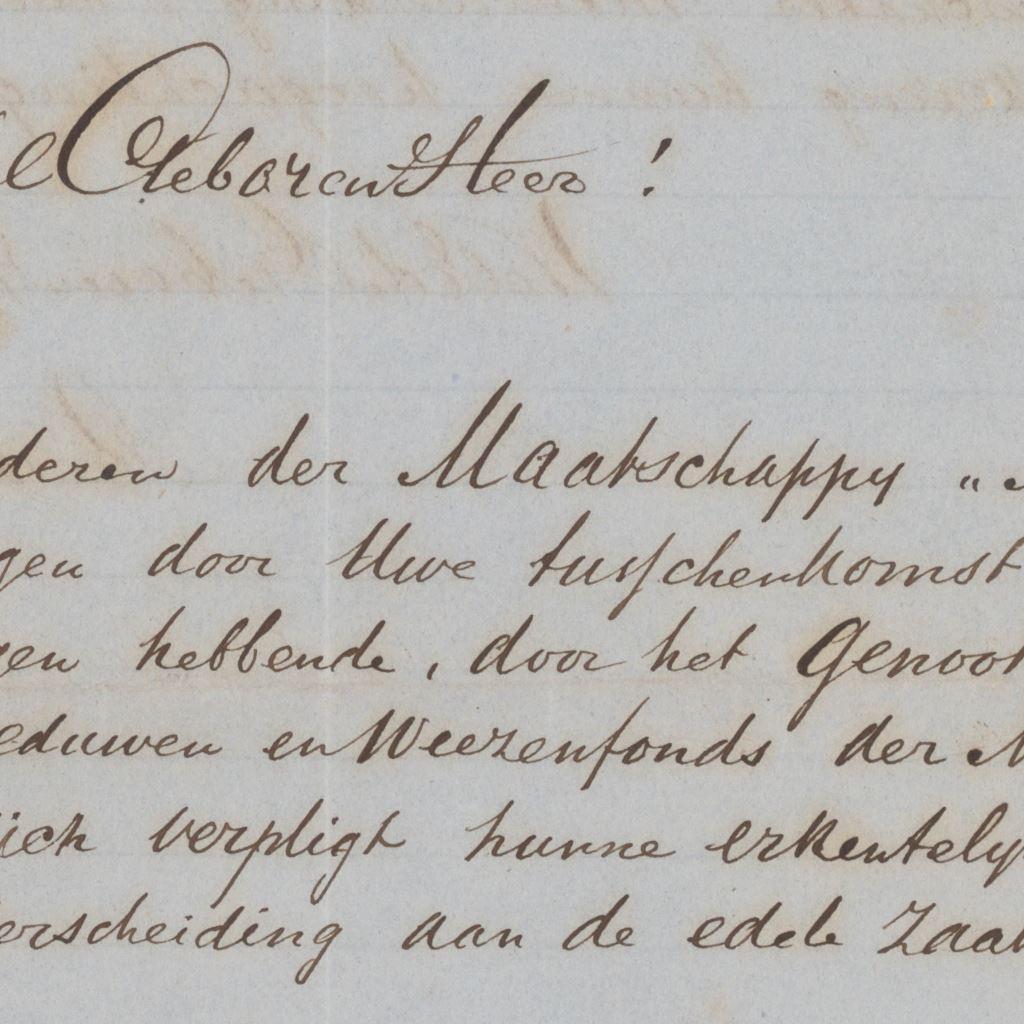 Geboren Heer !
deren der Maatschappy „
gen door Uwe tusschenkomst
gen hebbende, door het Genoot
eduwen en Weezenfonds der M
ich verpligt hunne erkentely
erscheiding aan de edele Zaak